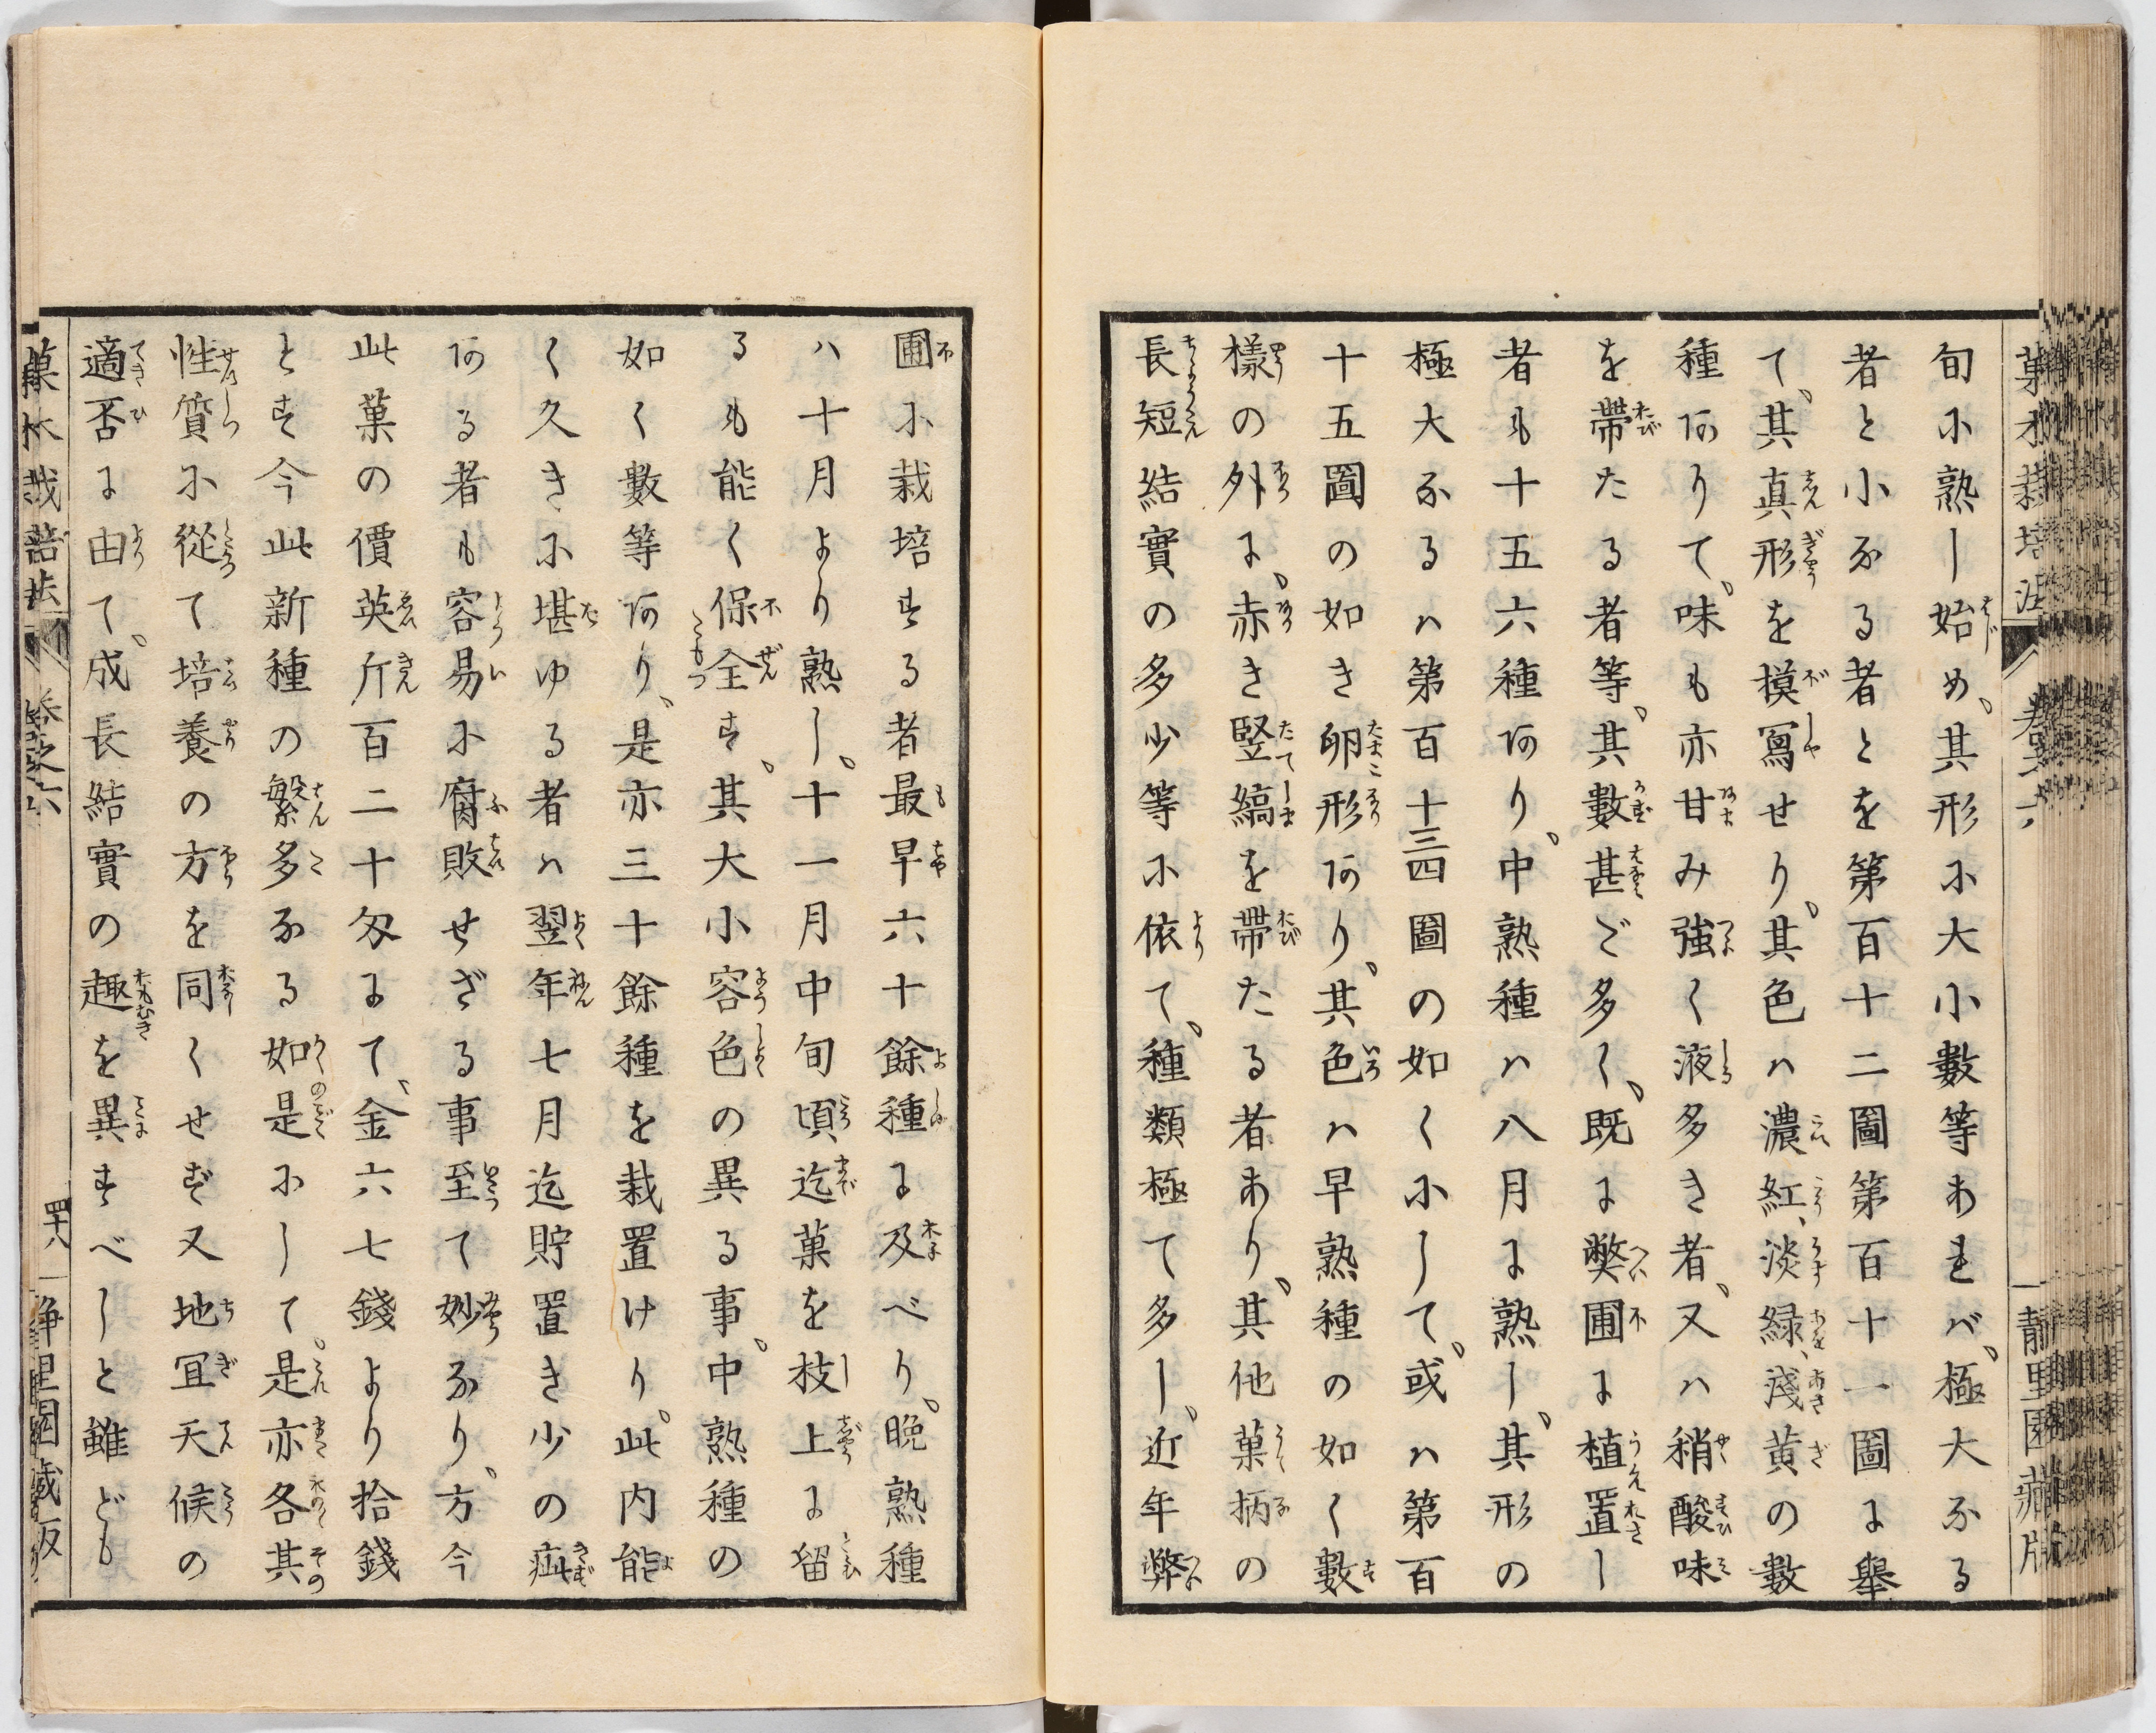 旬に熟し始め、其形に大小數等あれバ、極大なる
者と小なる者とを第百十二圖第百十一圖に舉
て、其真形を摸寫せり、其色ハ濃紅、淡緑、淺黄の數
種ありて、味も亦甘み強く液多き者、又ハ稍酸味
を帶たる者等、其數甚ご多く、既に弊圃に植置し
者も十五六種あり、中熟種ハ八月に熟し、其形の
極大なるハ第百十三四圖の如く小して、或ハ第百
十五圖の如き卵形あり、其色ハ早熟種の如く數
樣の外に、赤き竪縞を帶たる者あり、其他菓柄の
長短結實の多少等に依て、種類極て多し、近年弊
圃に栽培する者最早六十餘種に及べり、晩熟種
ハ十月より熟し、十一月中旬頃迄菓を枝上に留
るも能く保全す、其大小容色の異る事、中熟種の
如く數等あり、是亦三十餘種を栽置けり、此内能
く久きに堪ゆる者ハ翌年七月迄貯置き少の疵
ある者も容易に腐敗せざる事至て妙なり、方今
此菓の價英斤百二十匁にて、金六七錢より拾錢
とす今此新種の繁多なる如是にして、是亦各其
性質に從て培養の方を同くせず又地冝天候の
適否に由て、成長結實の趣を異すべしと雖ども
菓木栽培法 卷之六 四十八 靜里園藏版